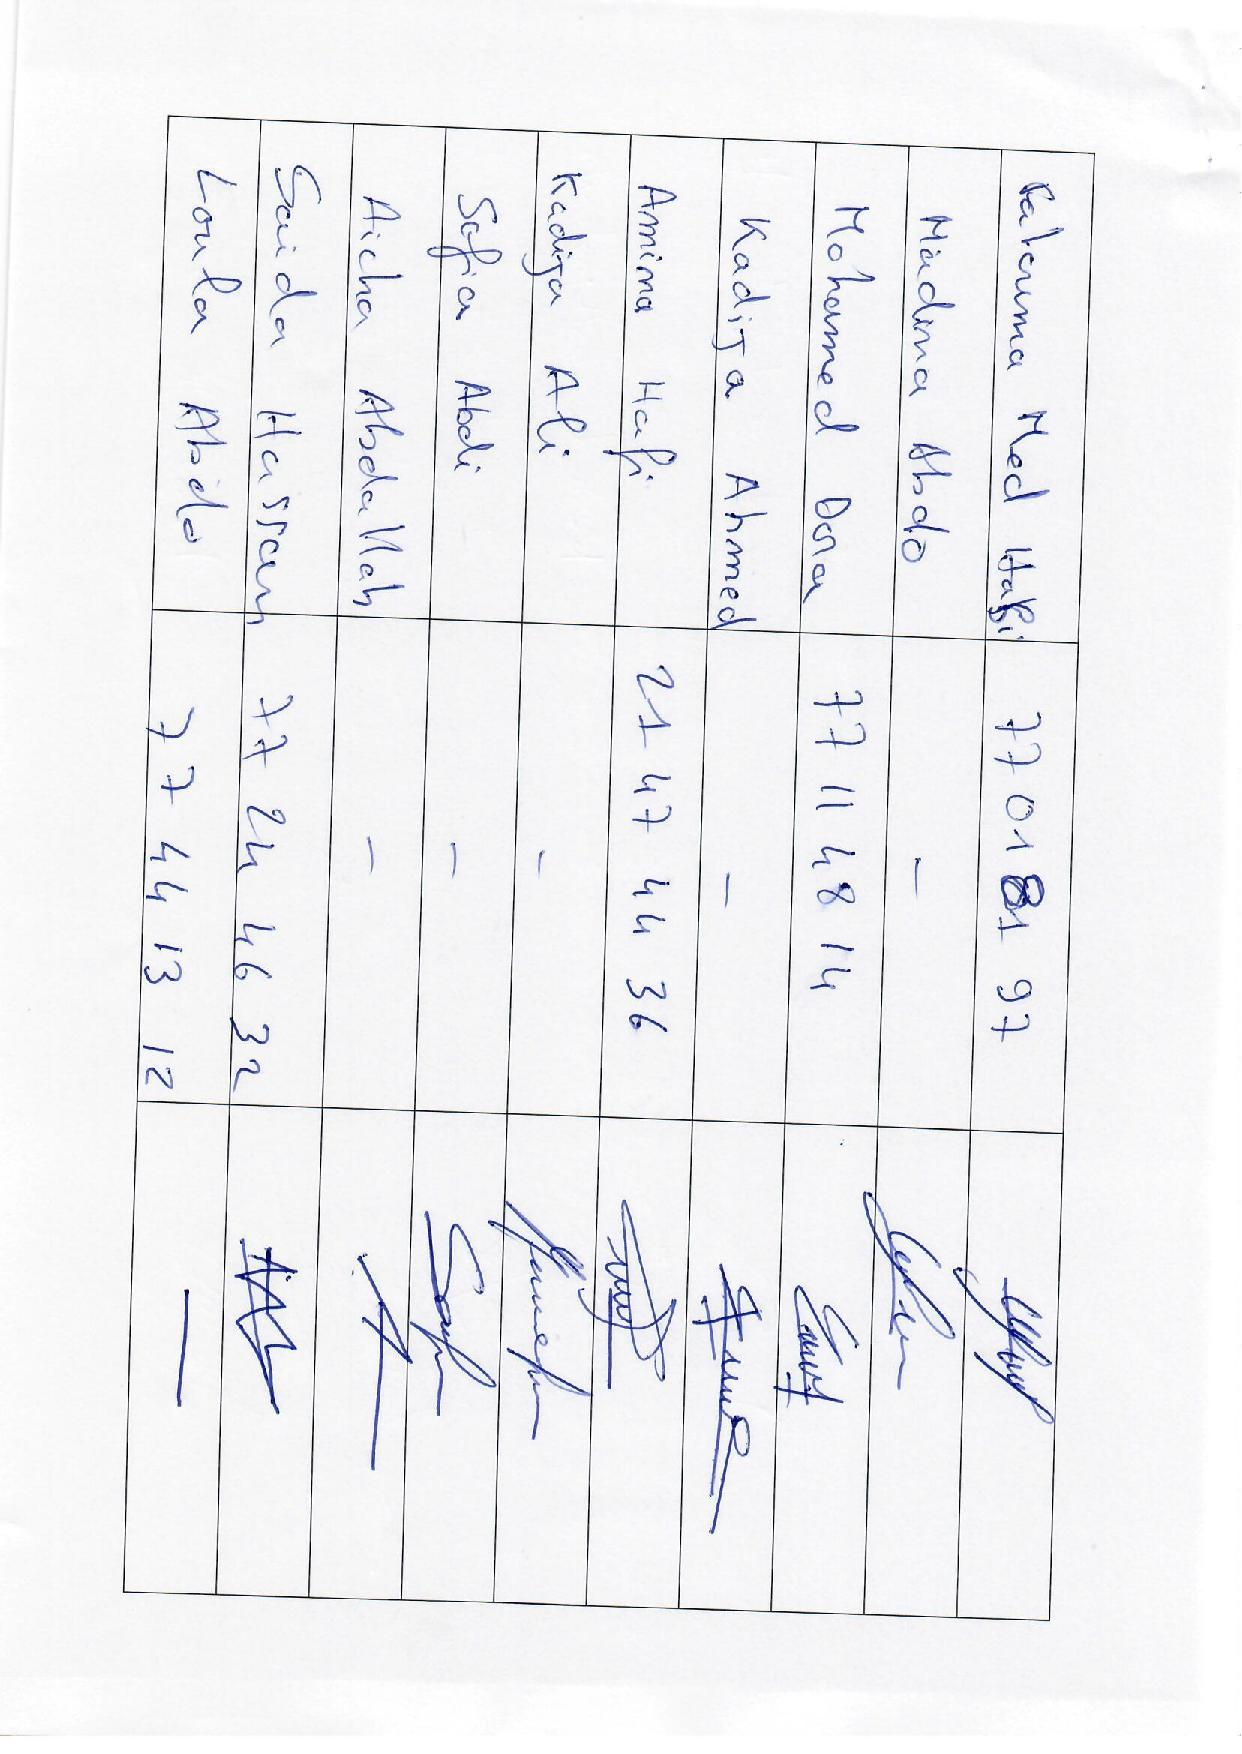 Fatouma Med Hafi 77 01 81 97
Madina Abdo -
Mohamed Dora 77 11 48 14
Kadija Ahmed -
Amina Hafi 21 47 44 36
Kadija Ali -
Safia Abdi -
Aicha Abdallah -
Saida Hassan 77 24 46 32
Loula Abdo 77 44 13 12